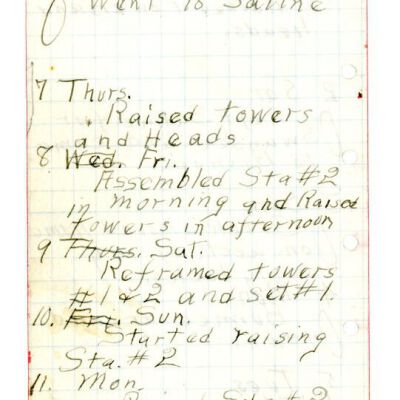 Went to Sabine
7 Thurs.
Raised towers
and Heads
8 Wed. Fri.
Assembled Sta #2
in morning and Raised
towers in afternoon
9 Thurs. Sat.
Reframed towers
#1 & 2 and set #1.
10. Fri. Sun.
Started raising
Sta. # 2
11. Mon.